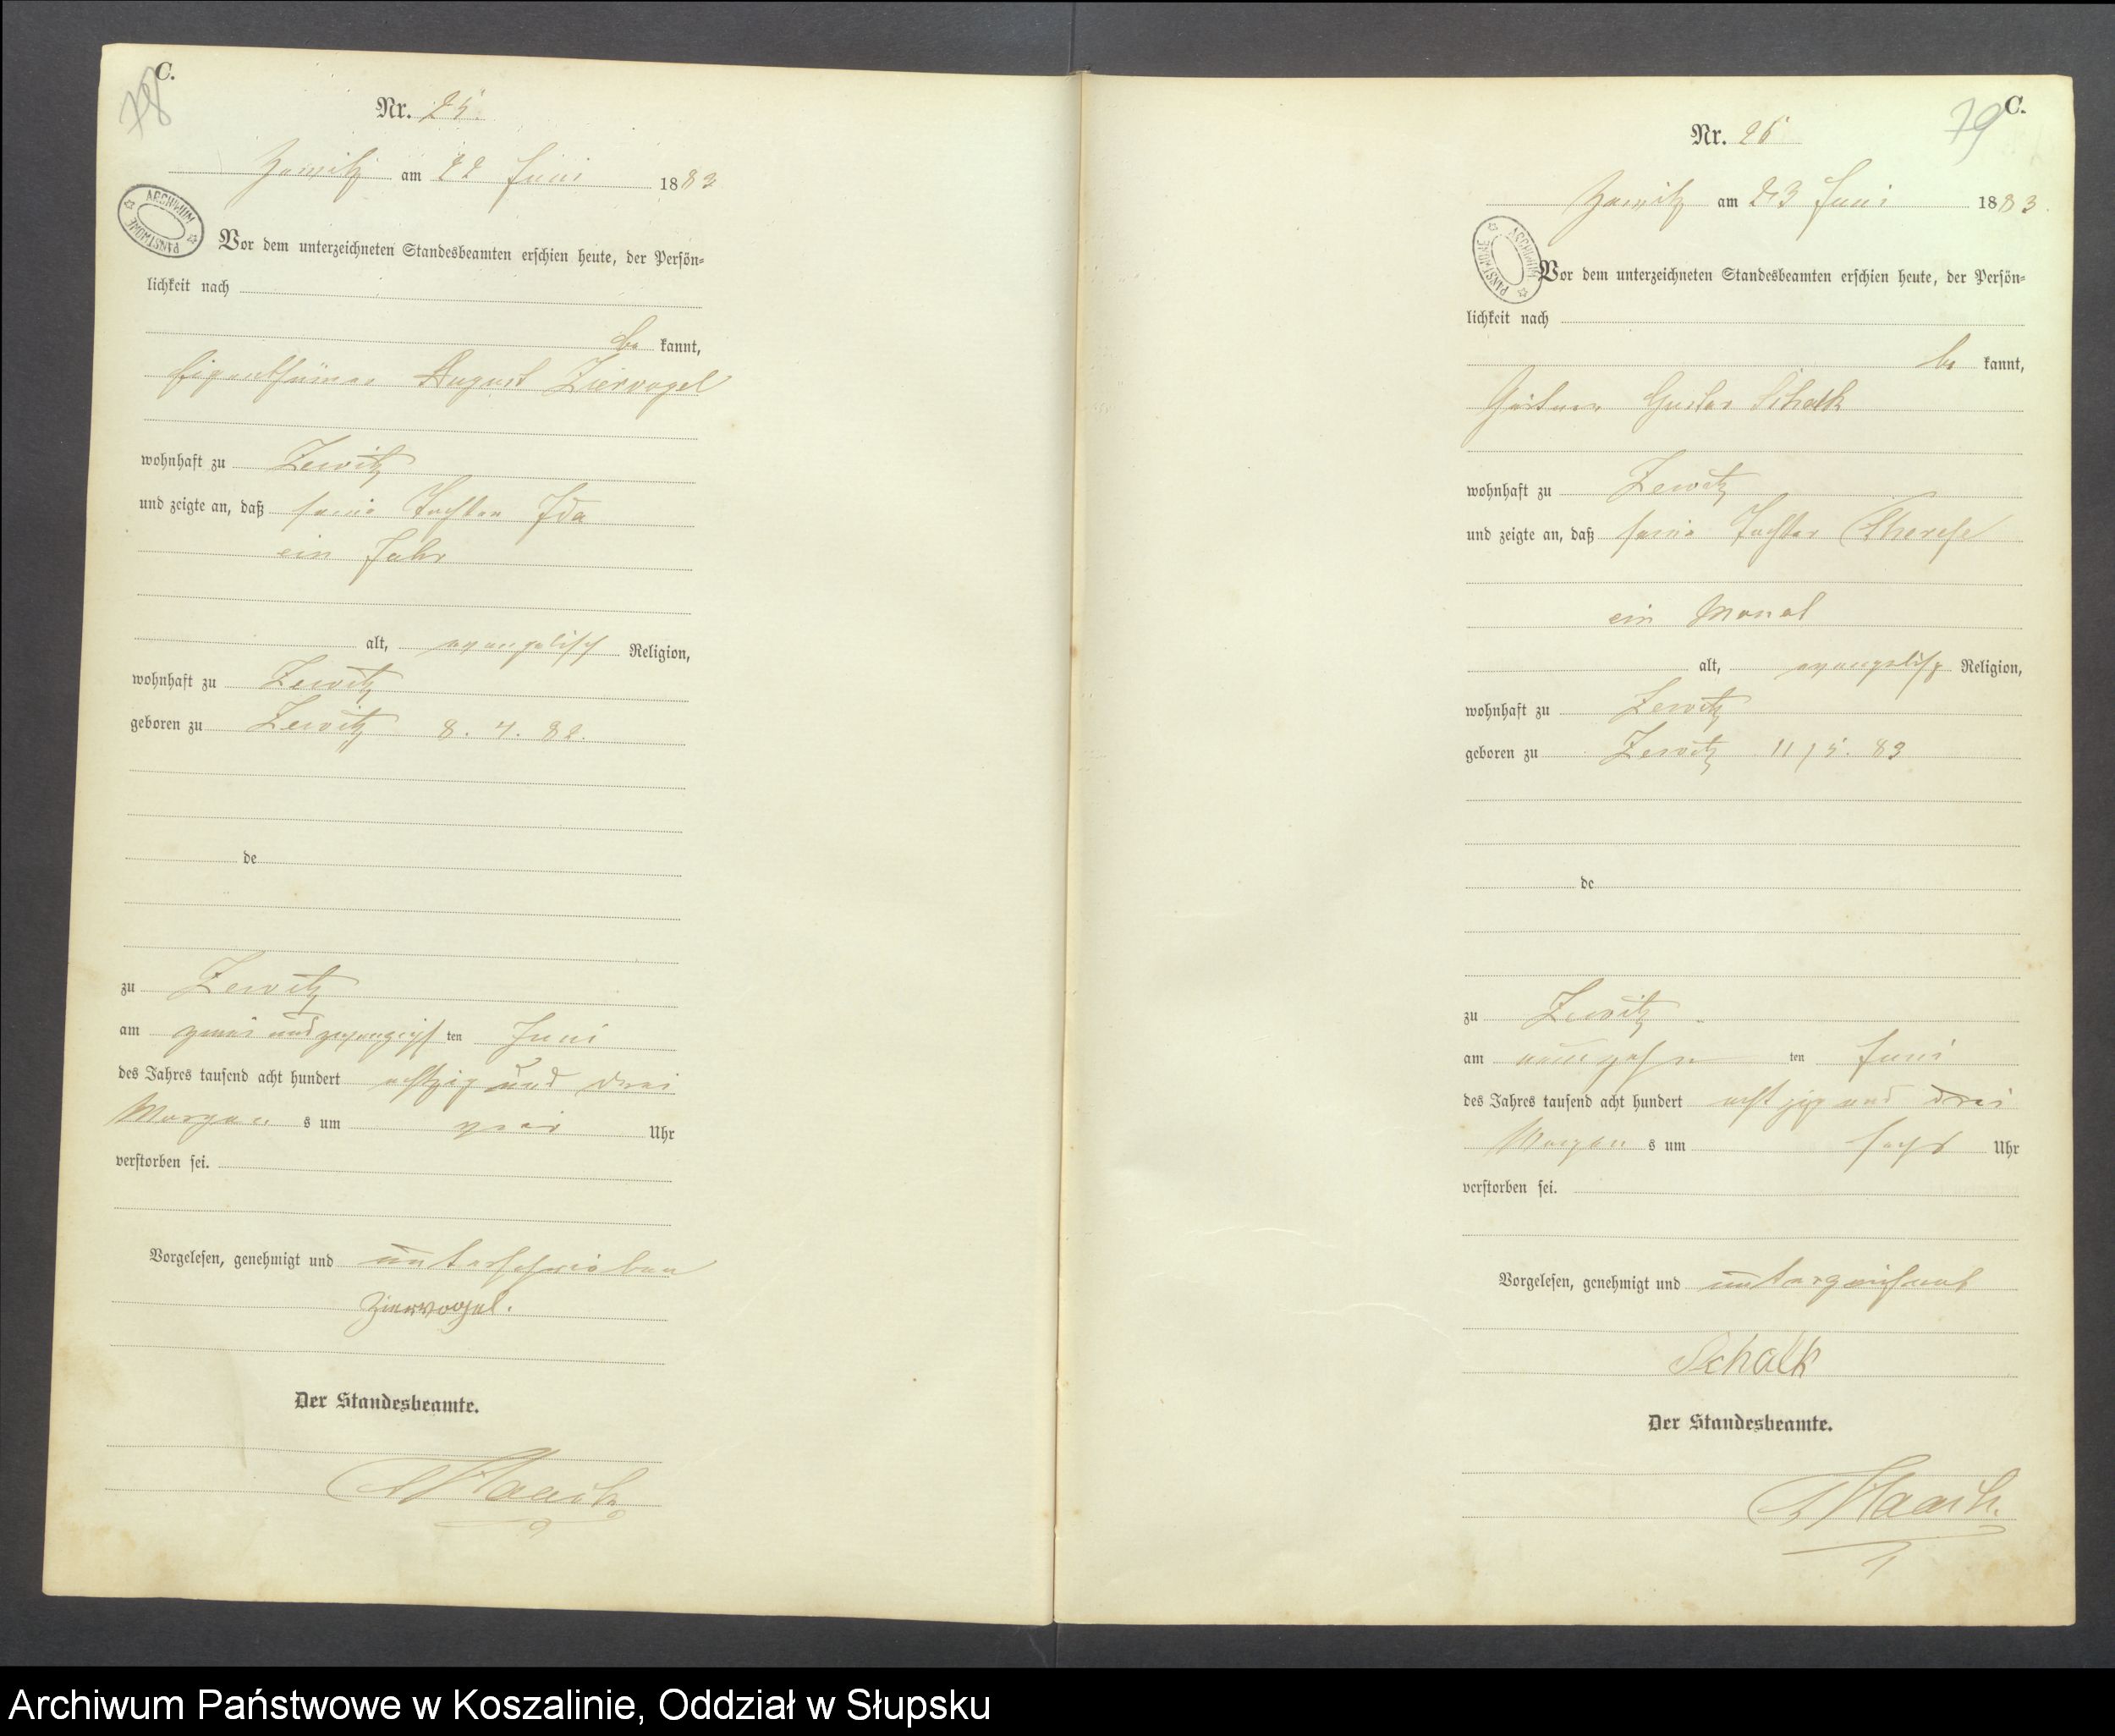 C.
78
Nr. 25.
Zewitz am 22 Juni 1883
ARCHIWUM PAŃSTWOWE
Vor dem unterzeichneten Standesbeamten erschien heute, der Persön-
lichkeit nach
be kannt,
Eigenthümer August Ziervogel
wohnhaft zu Zewitz
und zeigte an, daß seine Tochter Ida
ein Jahr
alt, evangelisch Religion,
wohnhaft zu Zewitz
geboren zu Zewitz 8. 4. 82.
de
zu Zewitz
am zwei und zwanzigsten Juni
des Jahres tausend acht hundert achtzig und drei
Morgens um Uhr
verstorben sei.
Vorgelesen, genehmigt und unterschrieben
Ziervogel.
Der Standesbeamte.
C.
79
Nr. 26
Zewitz am 23 Juni 1883.
ARCHIWUM PAŃSTWOWE
Vor dem unterzeichneten Standesbeamten erschien heute, der Persön-
lichkeit nach
be kannt,
Gärtner Gustav Schalk
wohnhaft zu Zewitz
und zeigte an, daß seine Tochter Therese
ein Monat
alt, evangelisch Religion,
wohnhaft zu Zewitz
geboren zu Zewitz 11/5. 83
de
zu Zewitz
am neunzehn ten Juni
des Jahres tausend acht hundert achtzig und drei
Morgens um sechs Uhr
verstorben sei.
Vorgelesen, genehmigt und unterzeichnet
Schalk
Der Standesbeamte.
Archiwum Państwowe w Koszalinie, Oddział w Słupsku